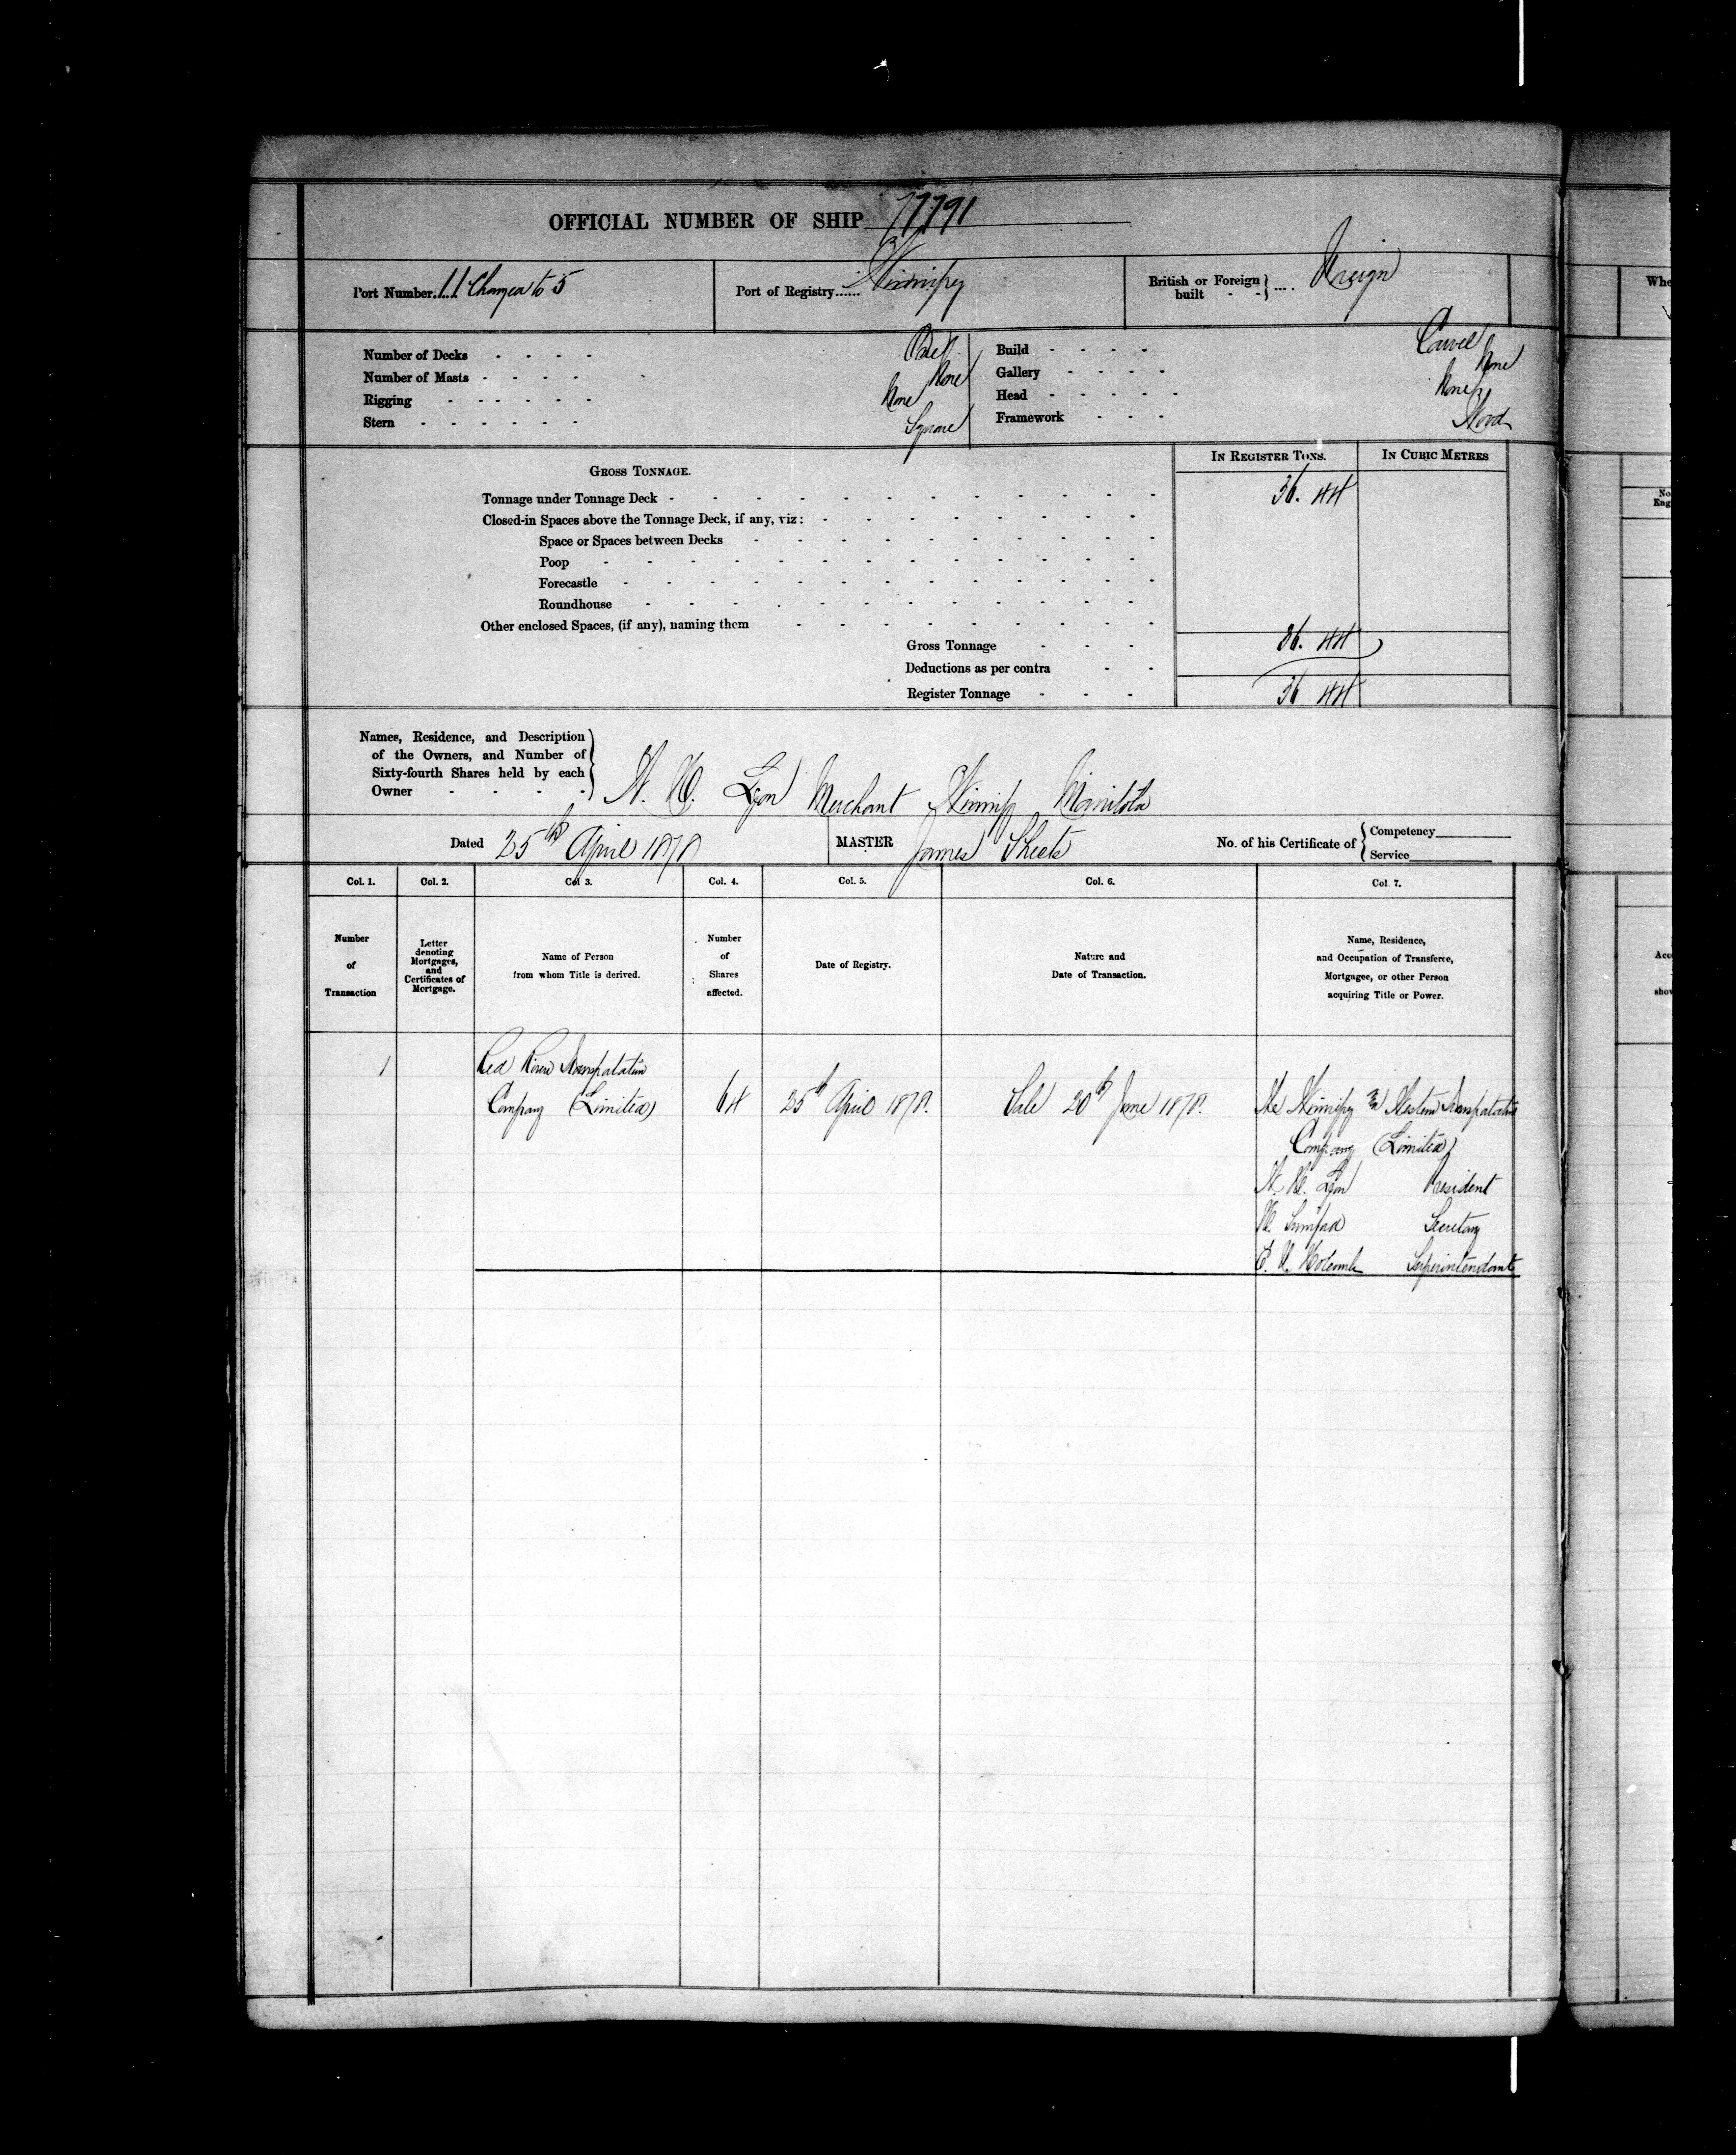 OFFICIAL NUMBER OF SHIP 77791
Port Number..... 11 Changed to 5
Port of Registry...... Winnipeg
British or Foreign built - - } .... Foreign
Number of Decks - - - - One
Number of Masts - - - - None
Rigging - - - - - - None
Stern - - - - - - Square
Build - - - - Carvel
Gallery - - - - None
Head - - - - - None
Framework - - - Wood
GROSS TONNAGE.
IN REGISTER TONS.
IN CUBIC METRES
Tonnage under Tonnage Deck - 36. 44
Closed-in Spaces above the Tonnage Deck, if any, viz:
Space or Spaces between Decks
Poop
Forecastle
Roundhouse
Other enclosed Spaces, (if any), naming them
Gross Tonnage - - - 36. 44
Deductions as per contra - -
Register Tonnage - - - 36 44
Names, Residence, and Description
of the Owners, and Number of
Sixty-fourth Shares held by each
Owner - - - -
W. H. Lyon Merchant Winnipg Manitoba
Dated 25th April 1878
MASTER James Sheets
No. of his Certificate of { Competency
Service
Col. 1.
Col. 2.
Col 3.
Col. 4.
Col. 5.
Col. 6.
Col. 7.
Number
of
Transaction
Letter
denoting
Mortgages,
and
Certificates of
Mortgage.
Name of Person
from whom Title is derived.
Number
of
Shares
affected.
Date of Registry.
Nature and
Date of Transaction.
Name, Residence,
and Occupation of Transferee,
Mortgagee, or other Person
acquiring Title or Power.
1
Red River Transportation
Company (Limited)
64
25th April 1878.
Sale 20th June 1878.
The Winnipeg & Western Transportation
Company (Limited)
W. H. Lyon President
Secretary
Superintendant
Whe
No.
Eng
Acc
show